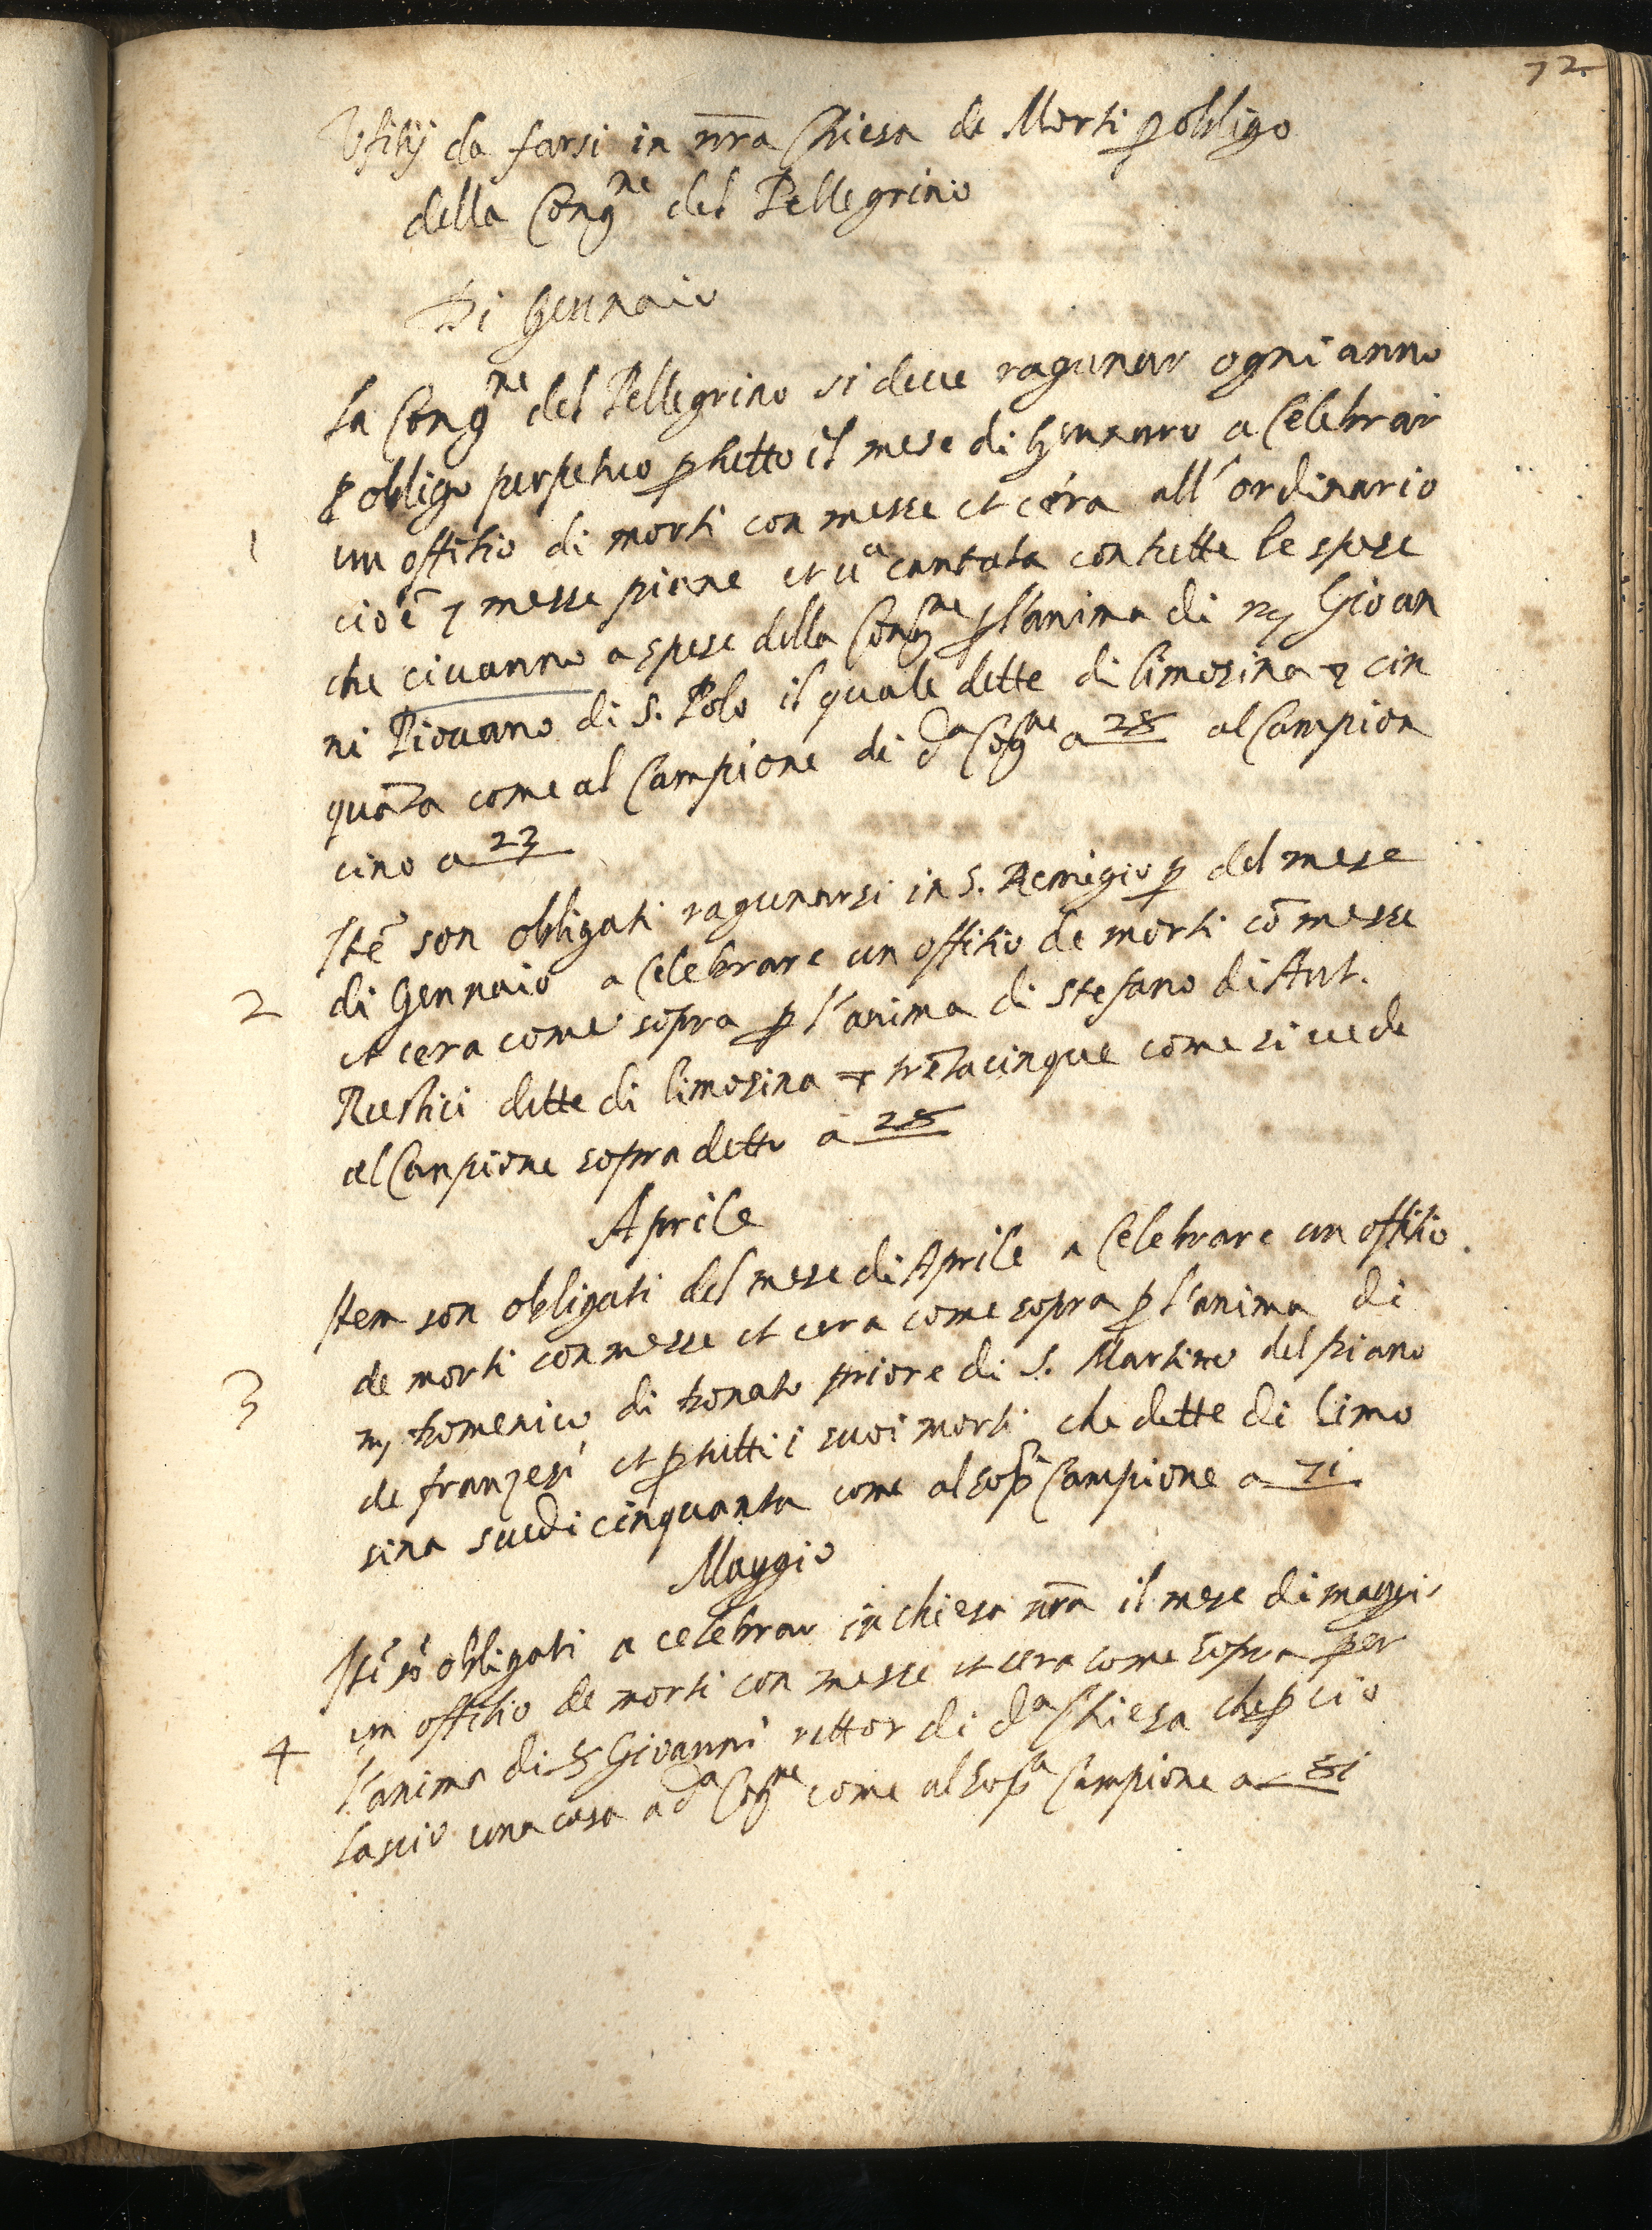 72
Ufitij da farsi in nr̄a Chiesa de Morti ꝑ obligo
della Congne del Pellegrino
Di Gennaio
La Congne del Pellegrino si deue ragunar ogni anno
ꝑ obligo perpetuo ꝑ tutto il mese di Gennaro a Celebrar
1 un offitio di morti con messe et cera all'ordinario
cioē 7 messe piane et ūa cantata con tutte le spese
che ci uanno a spese della Congne ꝑ l'anima di m Giouan
ni Piouano di S. Polo il quale dette di limosina cin
quāta come al Campione di da Cōgne a 28 al Campion
cino a 23
Itē son obligati ragunarsi in S. Remigio ꝑ del mese
2 di Gennaio a Celebrare un offitio de morti cō messe
et cera come sopra ꝑ l'anima di Stefano di Ant.
Rustici dette di limosina trētacinque come si uede
al Campione sopradetto a 28
Aprile
Item son obligati del mese di Aprile a Celebrare un offitio
de morti con messe et cera come sopra ꝑ l'anima di
3 m Domenico di Donato priore di S. Martino del piano
de franzesi et ꝑ tutti i suoi morti che dette di limo
sina scudi cinquanta come al sopa Campione a 71
Maggio
Itē sō obligati a celebrar in chiesa nr̄a il mese di maggi
un offitio de morti con messe et cera come sopra per
4 l'anima di Giovanni rettor di da Chiesa che ꝑ cio
lascio una casa a da Cōgne come al sopa Campione a 81